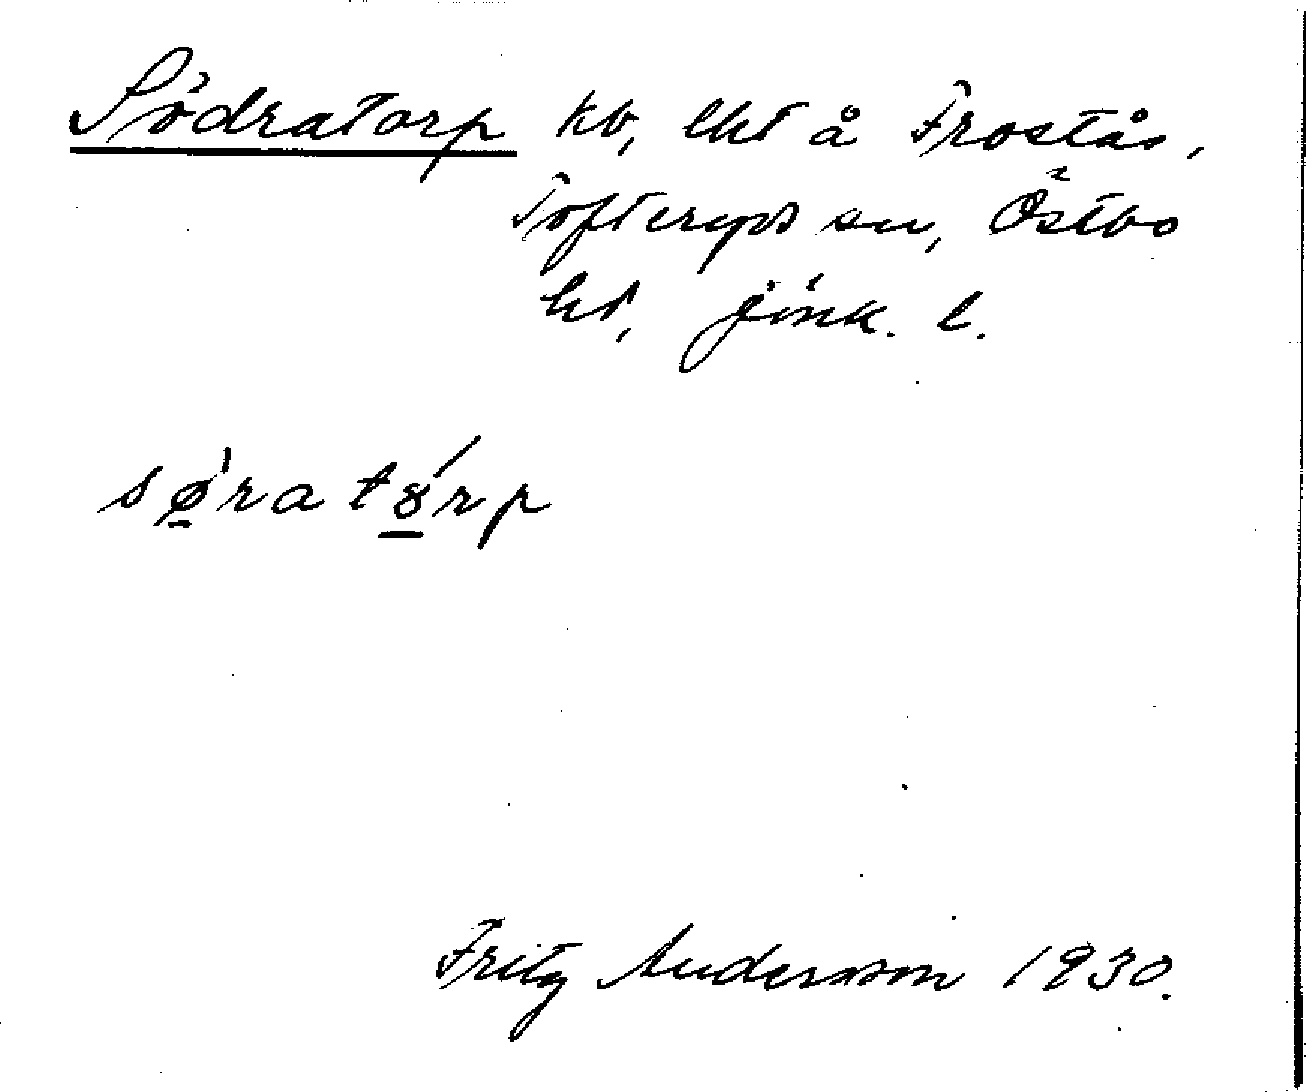 Södratorp kv, lht å Frostås,
Tofteryds sn, Östbo
hd, Jönk. l.
sø̱̀ra tȣ̱́rp
Fritz Andersson 1930.